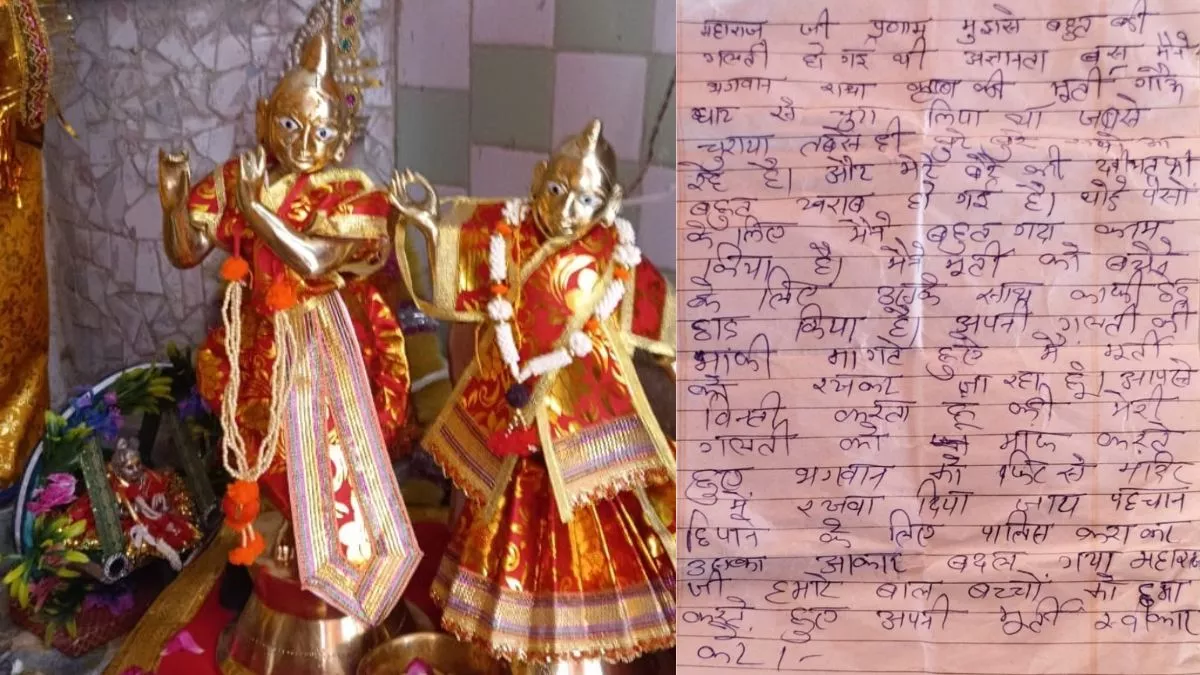 महाराज जी प्रणाम मुझसे बहुत बडी
गलती हो गई थी अज्ञानता बस मैने
भगवान राधा कृष्ण की मूर्ती गौऊ
घाट से चुरा लिया था जबसे
चुराया तबसे ही बुरे बुरे
रहे है। और मेरे बेटे की तबीयत भी
बहुत खराब हो गई है। थोडे पैसो
के लिए मैने बहुत गंदा काम
किया है। मैने मूर्ती को बेचने
के लिए उसके साथ काफी छेड़
छाड किया है। अपनी गलती की
माफी मागते हुए मै मूर्ती
को रखकर जा रहा हूँ। आपसे
विन्ती करता हूं की मेरी
गलती को माफ करते
हुए भगवान को फिर से मंदिर
में रखवा दिया जाय पहचान
छिपाने के लिए पालिस कराकर
उसका आकार बदल गया महाराज
जी हमारे बाल बच्चों को क्षमा
करते हुए अपनी मूर्ती स्वीकार
करे।-